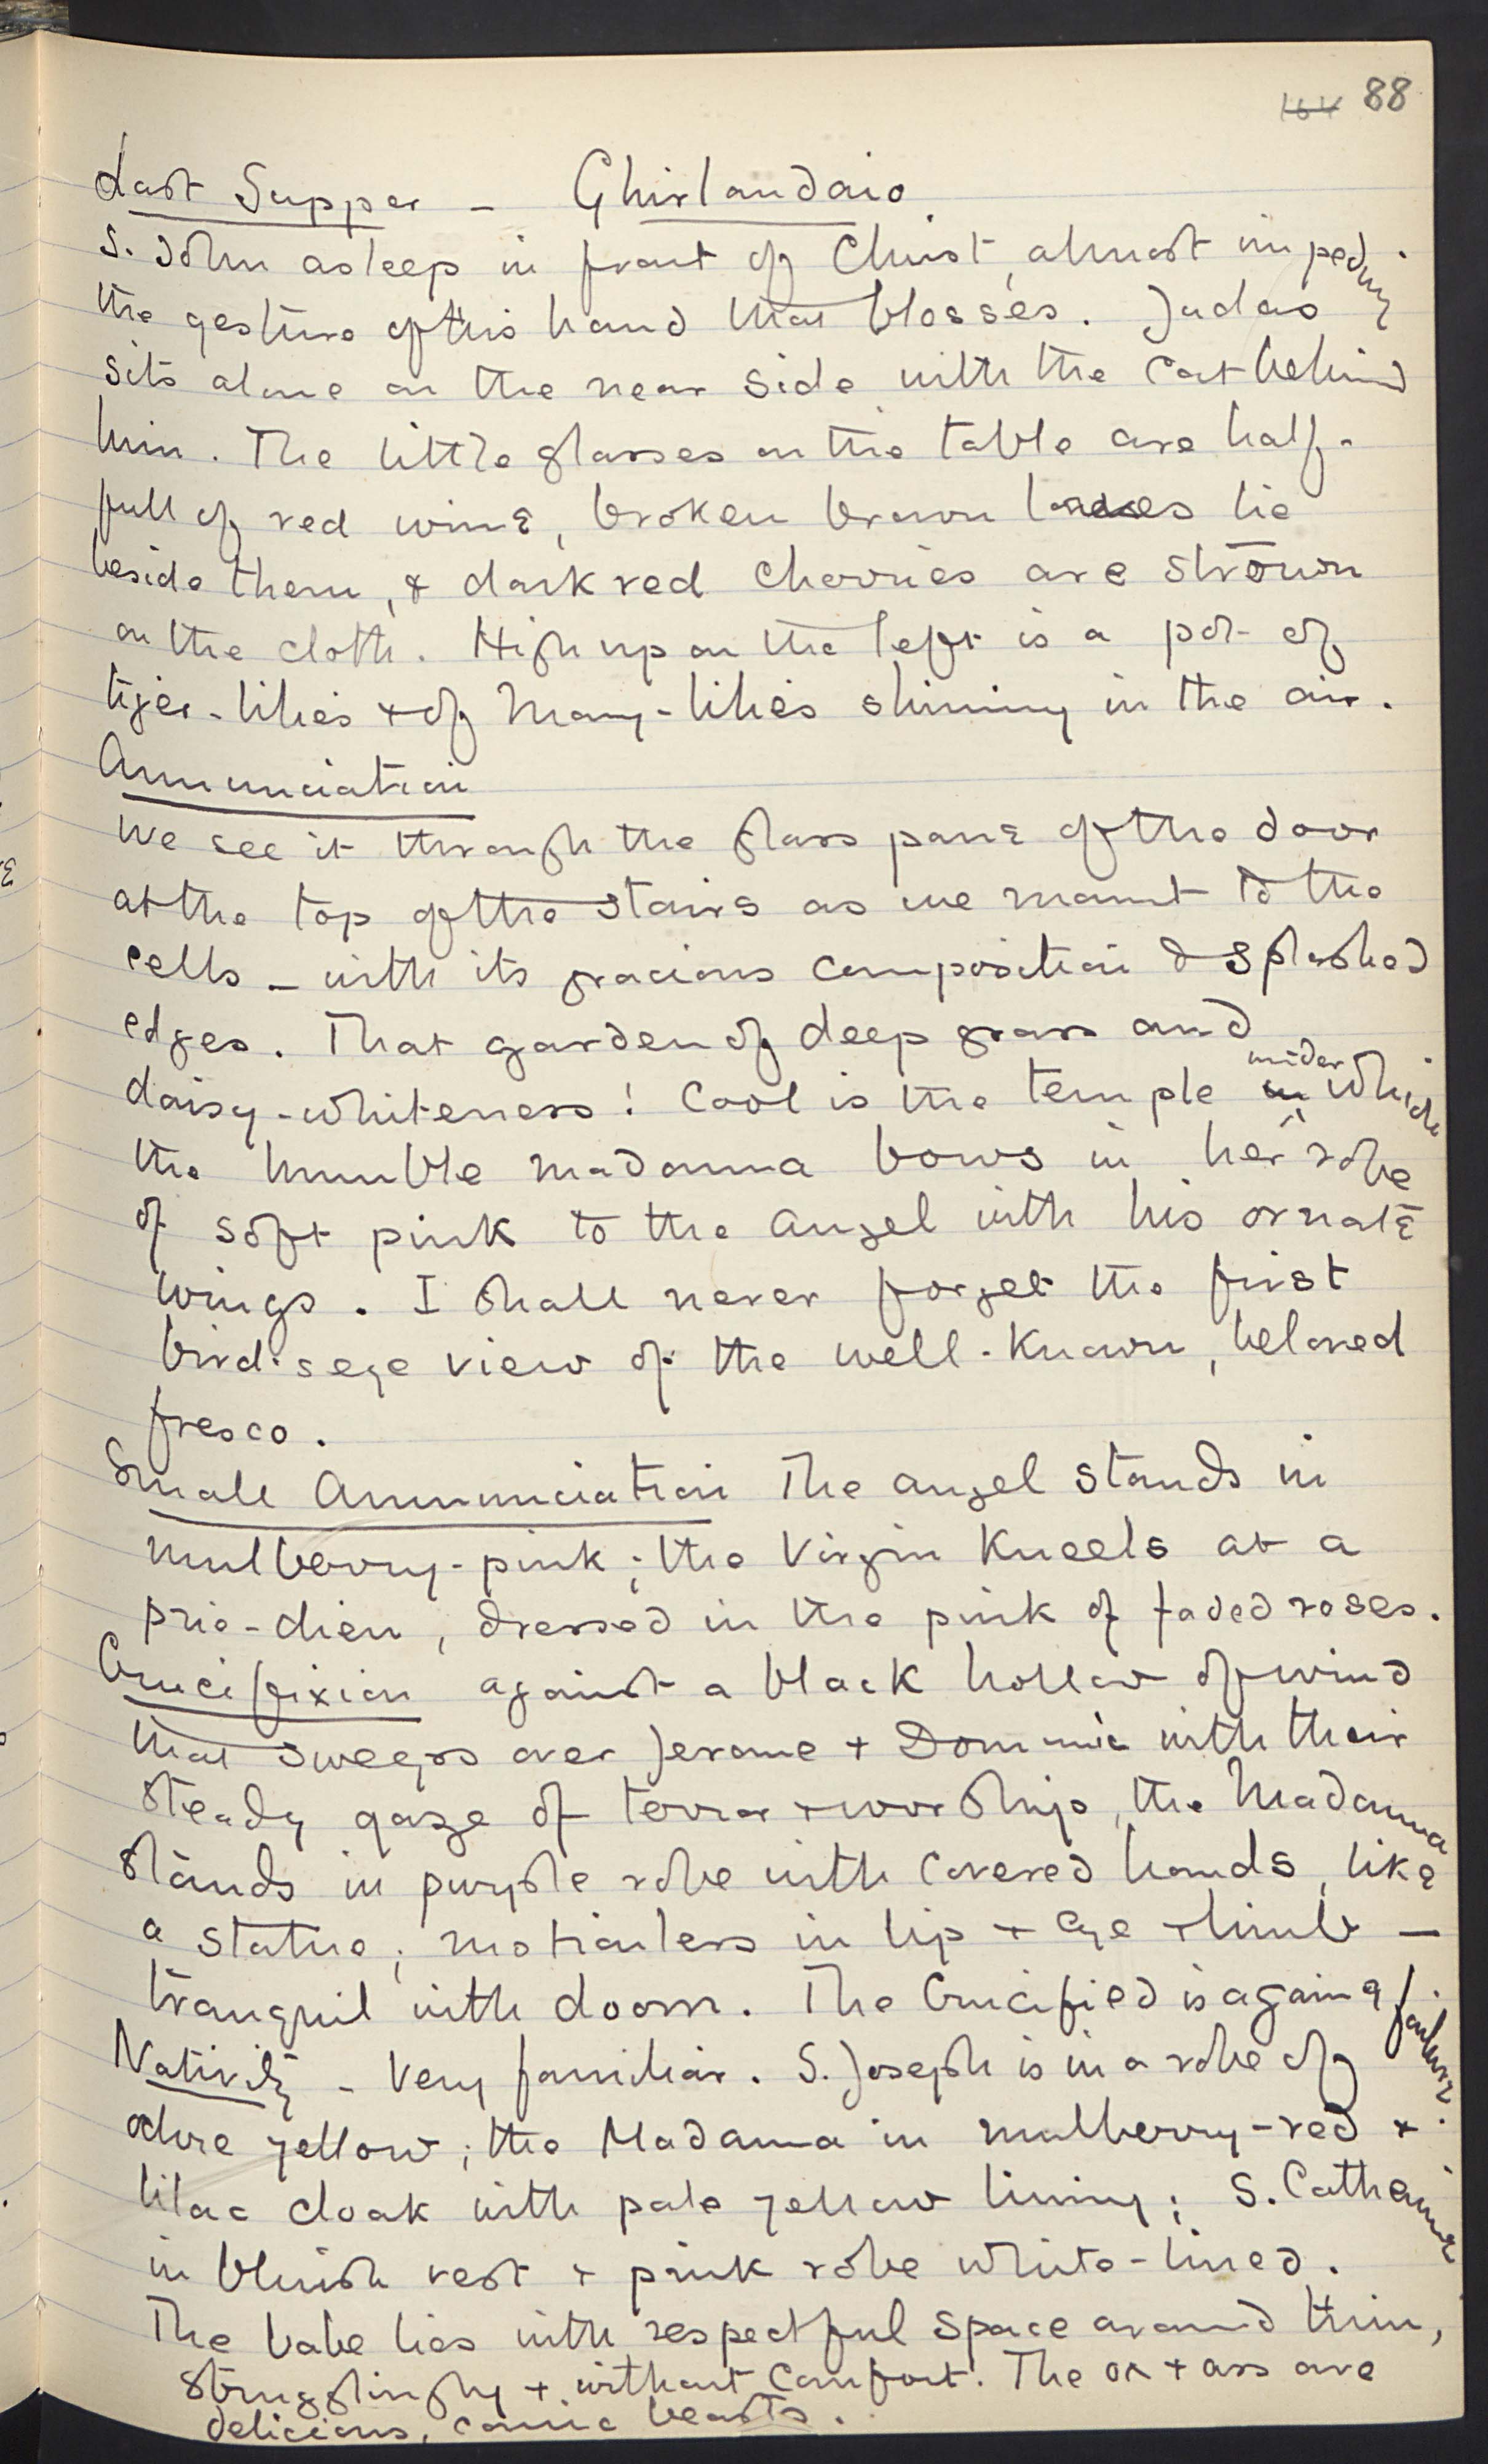 164 88
Last Supper – Ghirlandaio.
S. John asleep in front of Christ, almost impeding
the gesture of this hand that blesses. Judas
sits alone on the near side with the cat behind
him. The little glasses on the table are half-
full of red wine, broken brown loaves lie
beside them, & dark red cherries are strown
on the cloth. High up on the left is a pot of
tiger-lilies + of Mary-lilies shining in the air.
Annunciation
We see it through the glass pane of the door
at the top of the stairs as we mount to the
cells – with its gracious composition & splashed
edges. That garden of deep grass and
daisy-whiteness! Cool is the temple in under which
the humble madonna bows in her robe
of soft pink to the Angel with his ornate
wings. I shall never forget the first
bird's eye view of the well-known, beloved
fresco.
Small Annunciation The angel stands in
mulberry-pink; the Virgin kneels at a
prie-dieu, dressed in the pink of faded roses.
Crucifixion against a black hollow of wind
that sweeps over Jerome + Dominic with their
steady gaze of terror + worship, the Madonna
stands in purple robe with covered hands, like
a statue; motionless in lip + eye + limb –
tranquil with doom. The Crucified is again a failure.
Nativity – Very familiar. S. Joseph is in a robe of
ochre yellow; the Madonna in mulberry-red +
lilac cloak with pale yellow lining; S. Catherine
in bluish vest + pink robe white-lined.
The babe lies with respectful space around him,
strugglingly + without comfort. The ox + ass are
delicious, comic beasts.